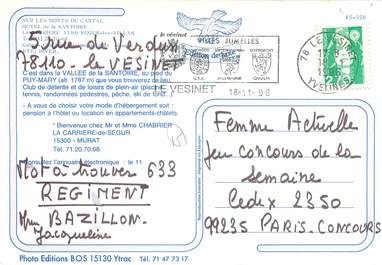 SUR LES MONTS DU CANTAL
HOTEL de la SANTOIRE
15-310
5, rue de Verdun
78110 - le VESINET
C'est dans la VALLÉE de la SANTOIRE, au pied du
PUY-MARY
Club de détente et de loisirs de plein-air
tennis, randonnées pédestres, pêche, ski de
- A vous de choisir votre mode d'hébergement soit :
pension à l'hôtel ou location en appartements-chalets.
" Bienvenue chez Mr et Mme CHABRIER
LA CARRIERE-de-SEGUR
15300 - MURAT
Tél. 71.20.70.68.
Consultez l'annuaire électronique : le 11
Mot à trouver 633
REGIMENT
BAZILLON
Jacqueline
Photo Editions BOS 15130 Ytrac Tél. 71 47 73 17
le vésinet
VILLES JUMELLES
LE VESINET
18-11-96
78 LE VESINET
YVELINES
Femme Actuelle
jeu concours de la
Semaine
Cedex 2350
99235 PARIS-CONCOURS